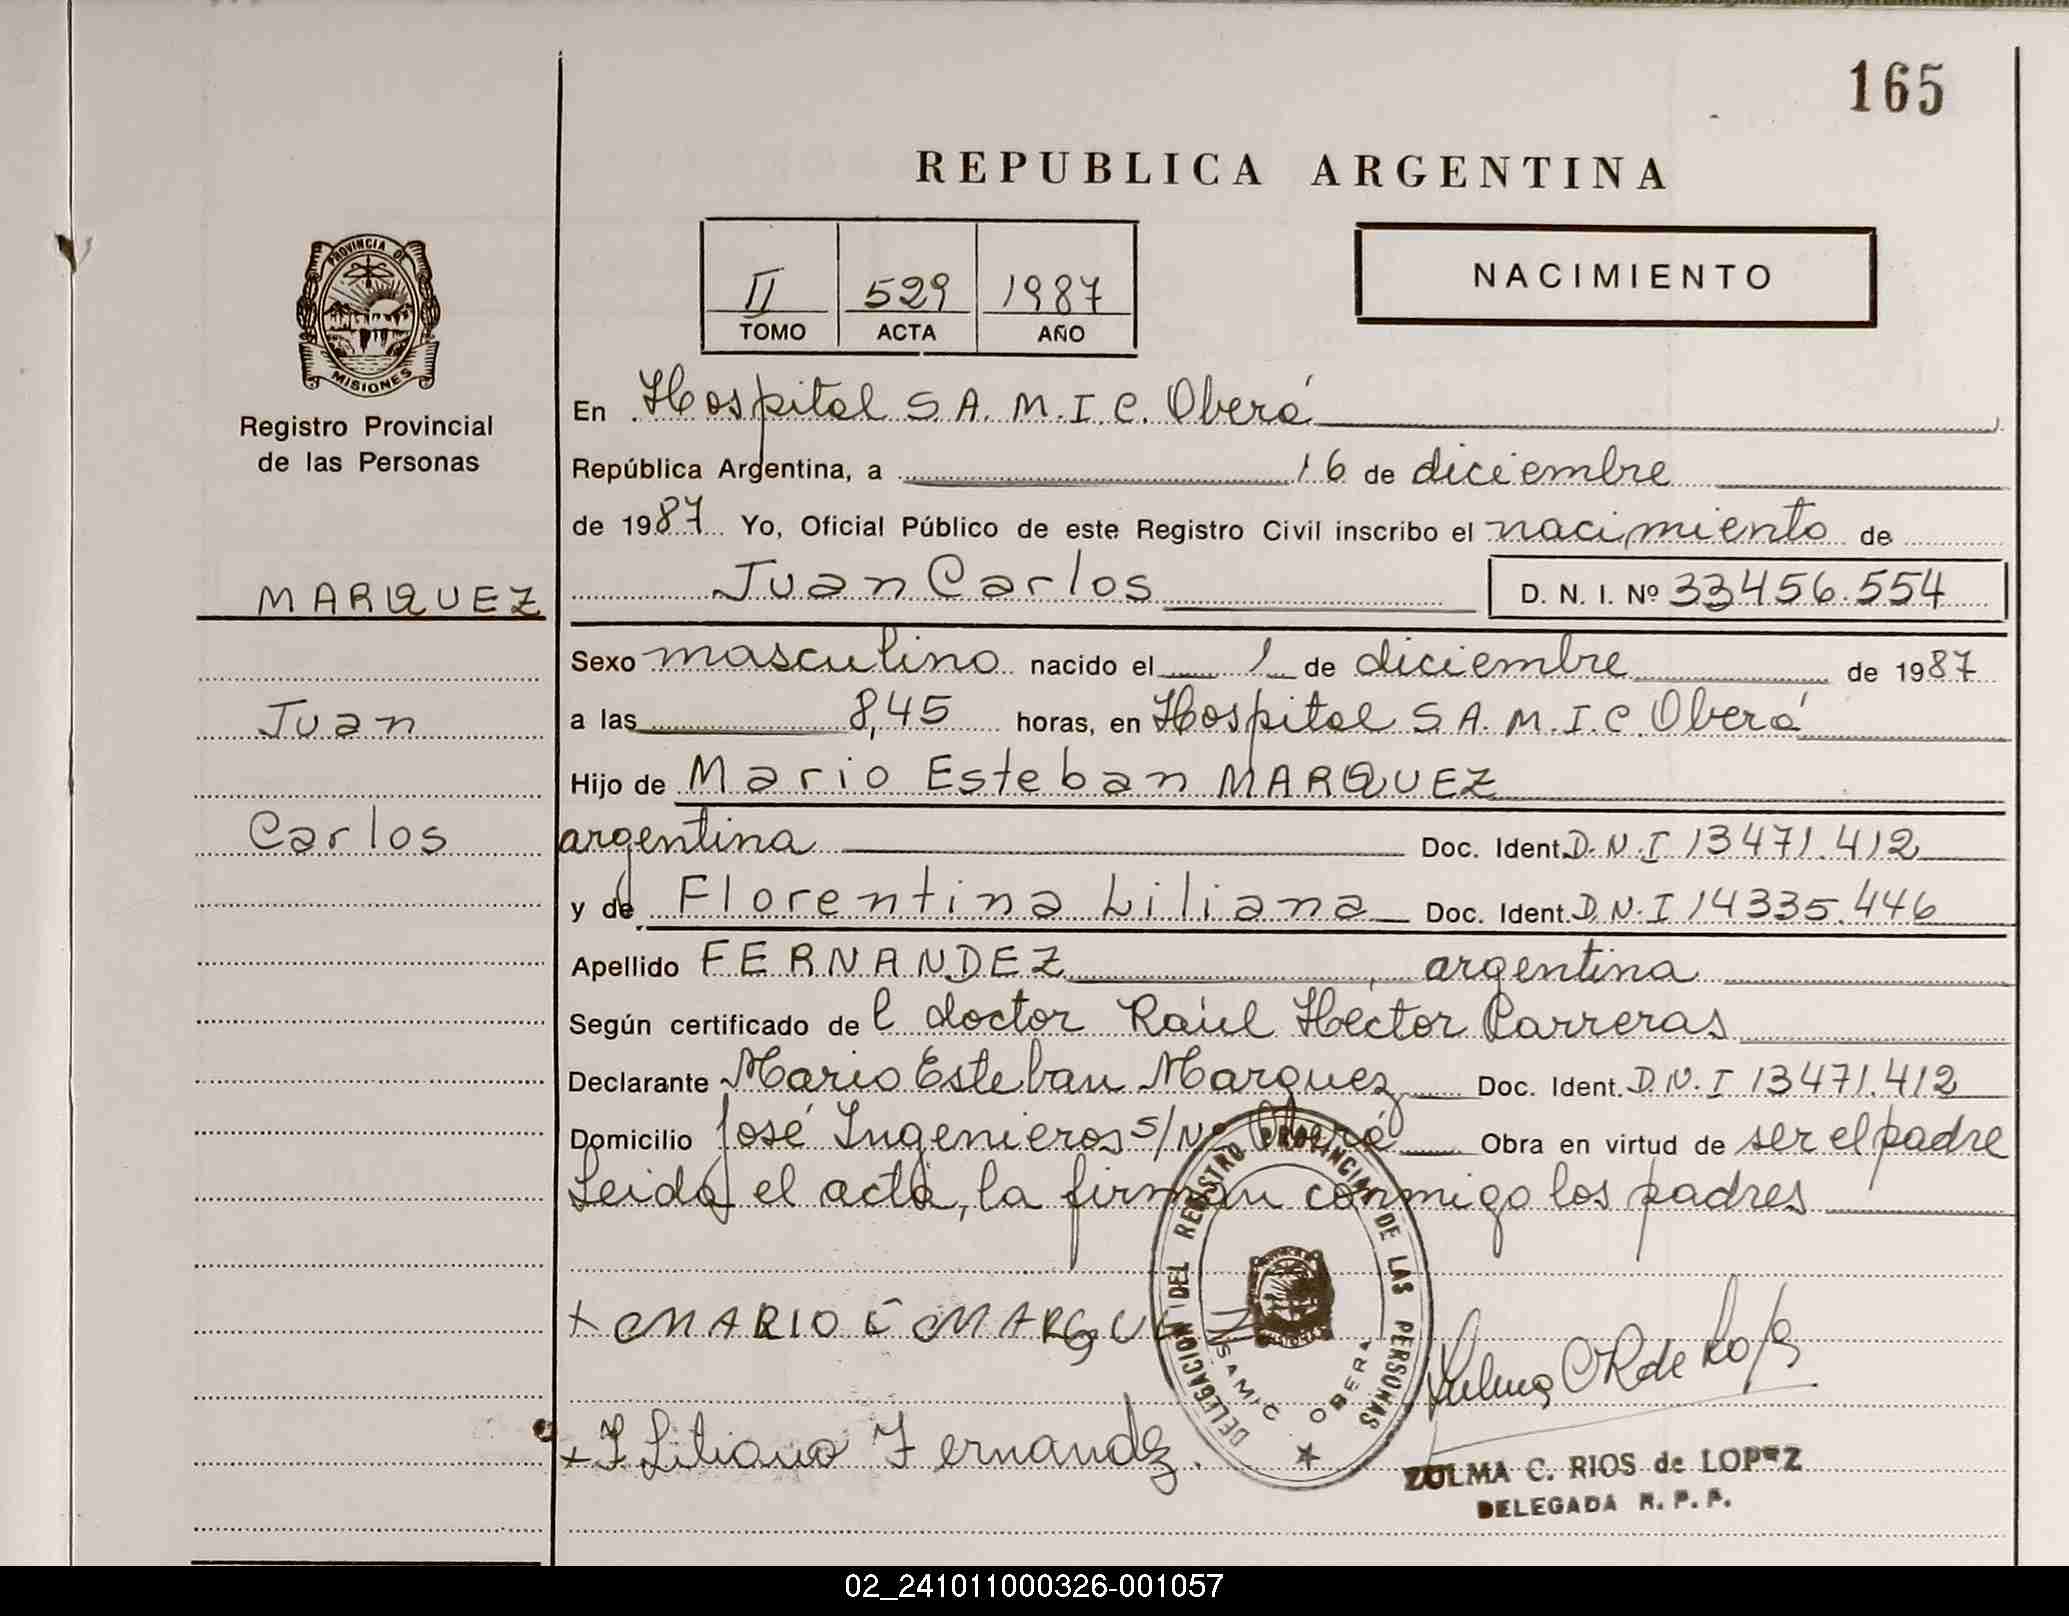 165
REPUBLICA ARGENTINA
II 529 1987
TOMO ACTA AÑO
NACIMIENTO
PROVINCIA DE
MISIONES
Registro Provincial
de las Personas
MARQUEZ
Juan
Carlos
En Hospital S A. M. I. C. Oberá
República Argentina, a 16 de diciembre
de 1987 Yo, Oficial Público de este Registro Civil inscribo el nacimiento de
Juan Carlos D. N. I. Nº 33456.554
Sexo masculino nacido el 1 de diciembre de 1987
a las 8,45 horas, en Hospital S A. M. I. C. Oberá
Hijo de Mario Esteban MARQUEZ
argentina Doc. Ident. D. N. I 13471.412
y de Florentina Liliana Doc. Ident. D. N. I 14335.446
Apellido FERNANDEZ, argentina
Según certificado de l doctor Raúl Héctor Parreras
Declarante Mario Esteban Marquez Doc. Ident. D. N. I 13471.412
Domicilio José Ingenieros s/Nº Oberá Obra en virtud de ser el padre
Leida el acta, la firman conmigo los padres
+ MARIO E MARQUEZ
+ F Liliana Fernandez.
DELEGACION DEL REGISTRO PROVINCIAL DE LAS PERSONAS
SAMIC OBERA
ZULMA C. RIOS de LOPEZ
DELEGADA R. P. P.
02_241011000326-001057